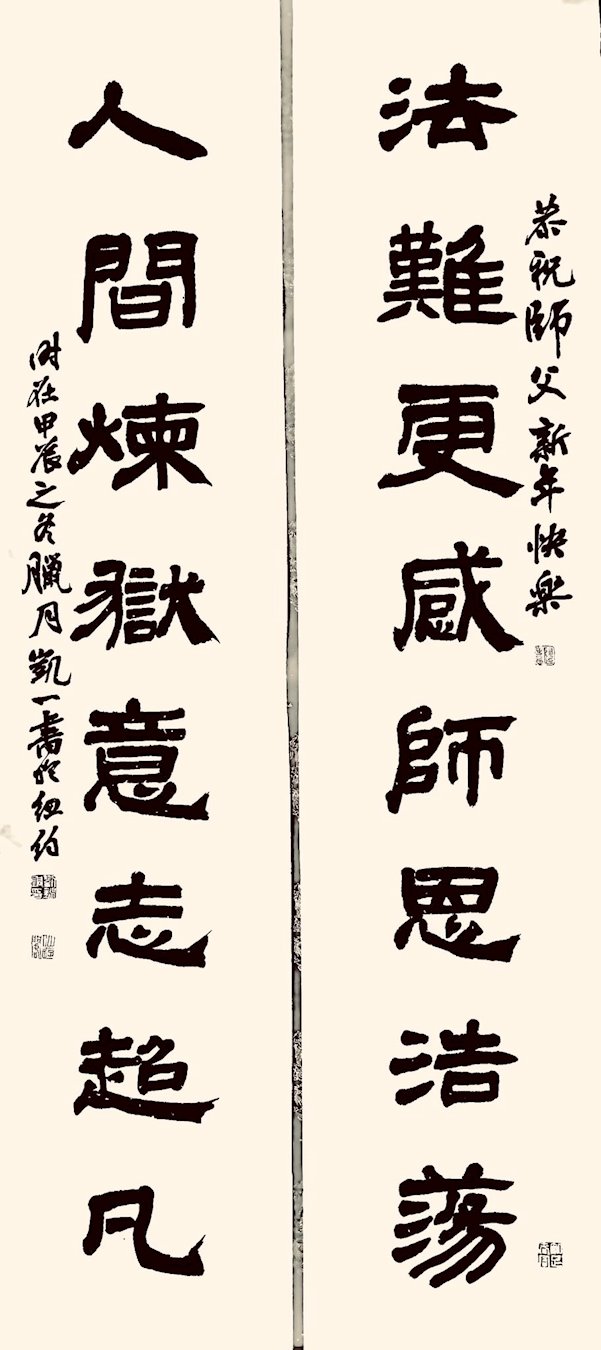 恭祝師父新年快樂
法難更感師恩浩蕩
人間煉獄意志超凡
時在甲辰之冬臘月凱一書於紐約